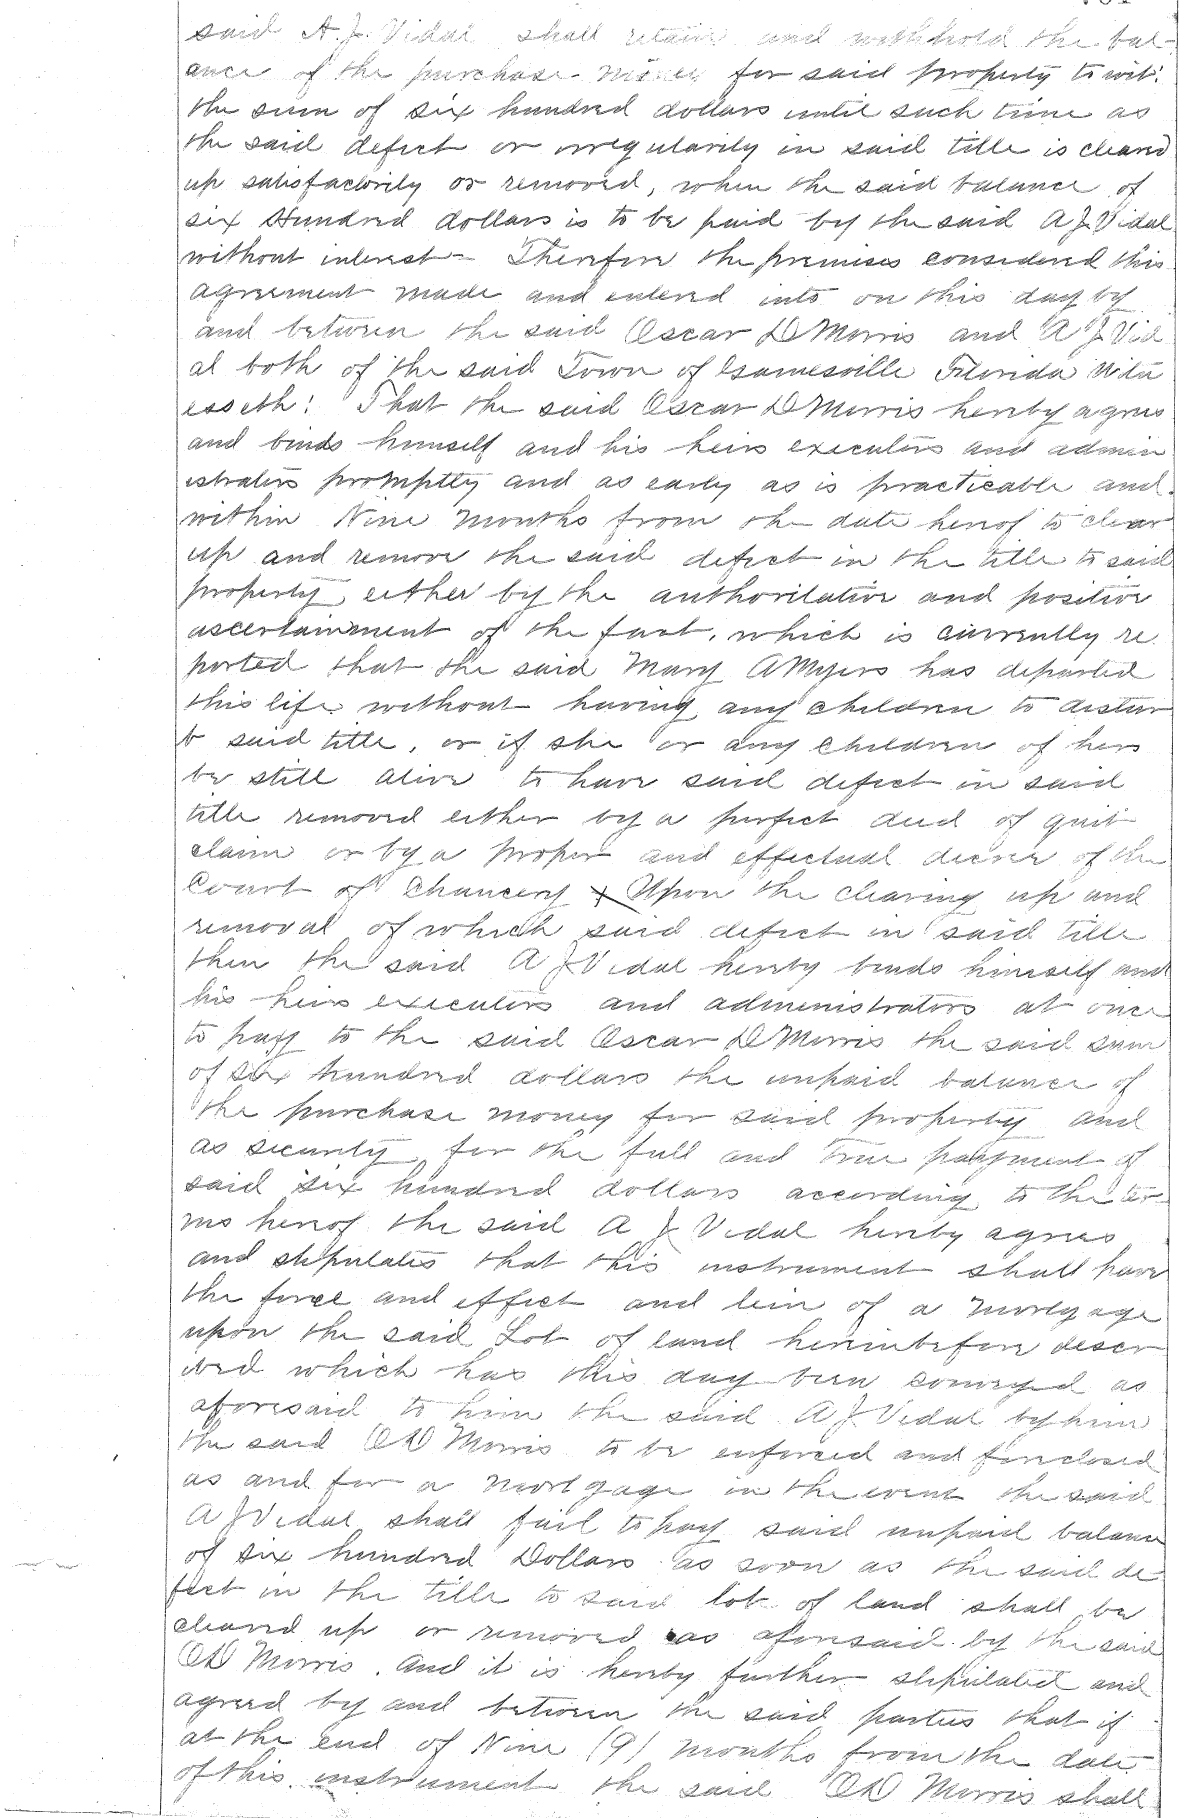 said A. J. Vidal shall retain and withhold the bal-
ance of the purchase money for said property to wit:
the sum of six hundred dollars until such time as
the said defect or irregularity in said title is cleared
up satisfactorily or removed, when the said balance of
six Hundred dollars is to be paid by the said A J Vidal
without interest- Therefore the premises considered this
agreement made and entered into on this day by
and between the said Oscar D Morris and A J Vid
al both of the said Town of Gainesville Florida Witn
esseth: That the said Oscar D Morris hereby agrees
and binds himself and his heirs executors and admin
istrators promptly and as early as is practicable and
within Nine Months from the date hereof to clear
up and remove the said defect in the title to said
property, either by the authoritative and positive
ascertainment of the fact, which is currently re
ported that the said Mary A Myers has departed
this life without having any children to distur
b said title, or if she or any children of hers
be still alive to have said defect in said
title removed either by a perfect deed of quit
claim or by a proper and effectual decree of the
Court of Chancery x Upon the clearing up and
removal of which said defect in said title
then the said A J Vidal hereby binds himself and
his heirs executors and administrators at once
to pay to the said Oscar D Morris the said sum
of six hundred dollars the unpaid balance of
the purchase money for said property and
as security for the full and true payment of
said six hundred dollars according to the ter-
ms hereof the said A J Vidal hereby agrees
and stipulates that this instrument shall have
the force and effect and lein of a mortgage
upon the said Lot of land hereinbefore descr
ibed which has this day been conveyed as
aforesaid to him the said A J Vidal by him
the said O D Morris to be enforced and foreclosed
as and for a mortgage in the event the said
A J Vidal shall fail to pay said unpaid balance
of six hundred Dollars as soon as the said de
fect in the title to said lot of land shall be
cleared up or removed as aforesaid by the said
O D Morris. And it is hereby further stipulated and
agreed by and between the said parties that if
at the end of Nine (9) months from the date
of this instrument the said O D Morris shall